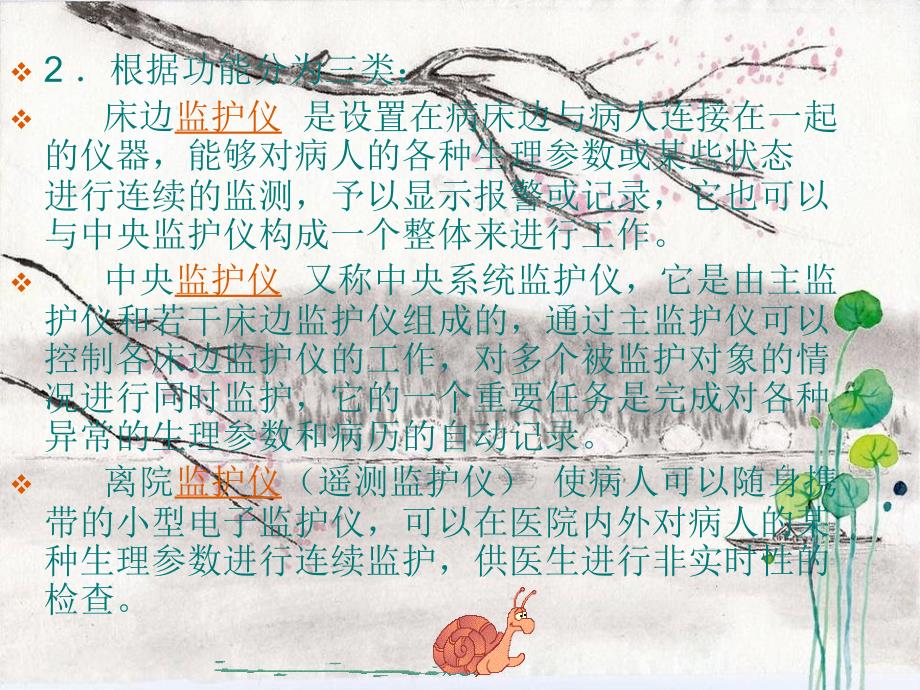 2．根据功能分为三类：
床边监护仪 是设置在病床边与病人连接在一起
的仪器，能够对病人的各种生理参数或某些状态
进行连续的监测，予以显示报警或记录，它也可以
与中央监护仪构成一个整体来进行工作。
中央监护仪 又称中央系统监护仪，它是由主监
护仪和若干床边监护仪组成的，通过主监护仪可以
控制各床边监护仪的工作，对多个被监护对象的情
况进行同时监护，它的一个重要任务是完成对各种
异常的生理参数和病历的自动记录。
离院监护仪（遥测监护仪） 使病人可以随身携
带的小型电子监护仪，可以在医院内外对病人的某
种生理参数进行连续监护，供医生进行非实时性的
检查。